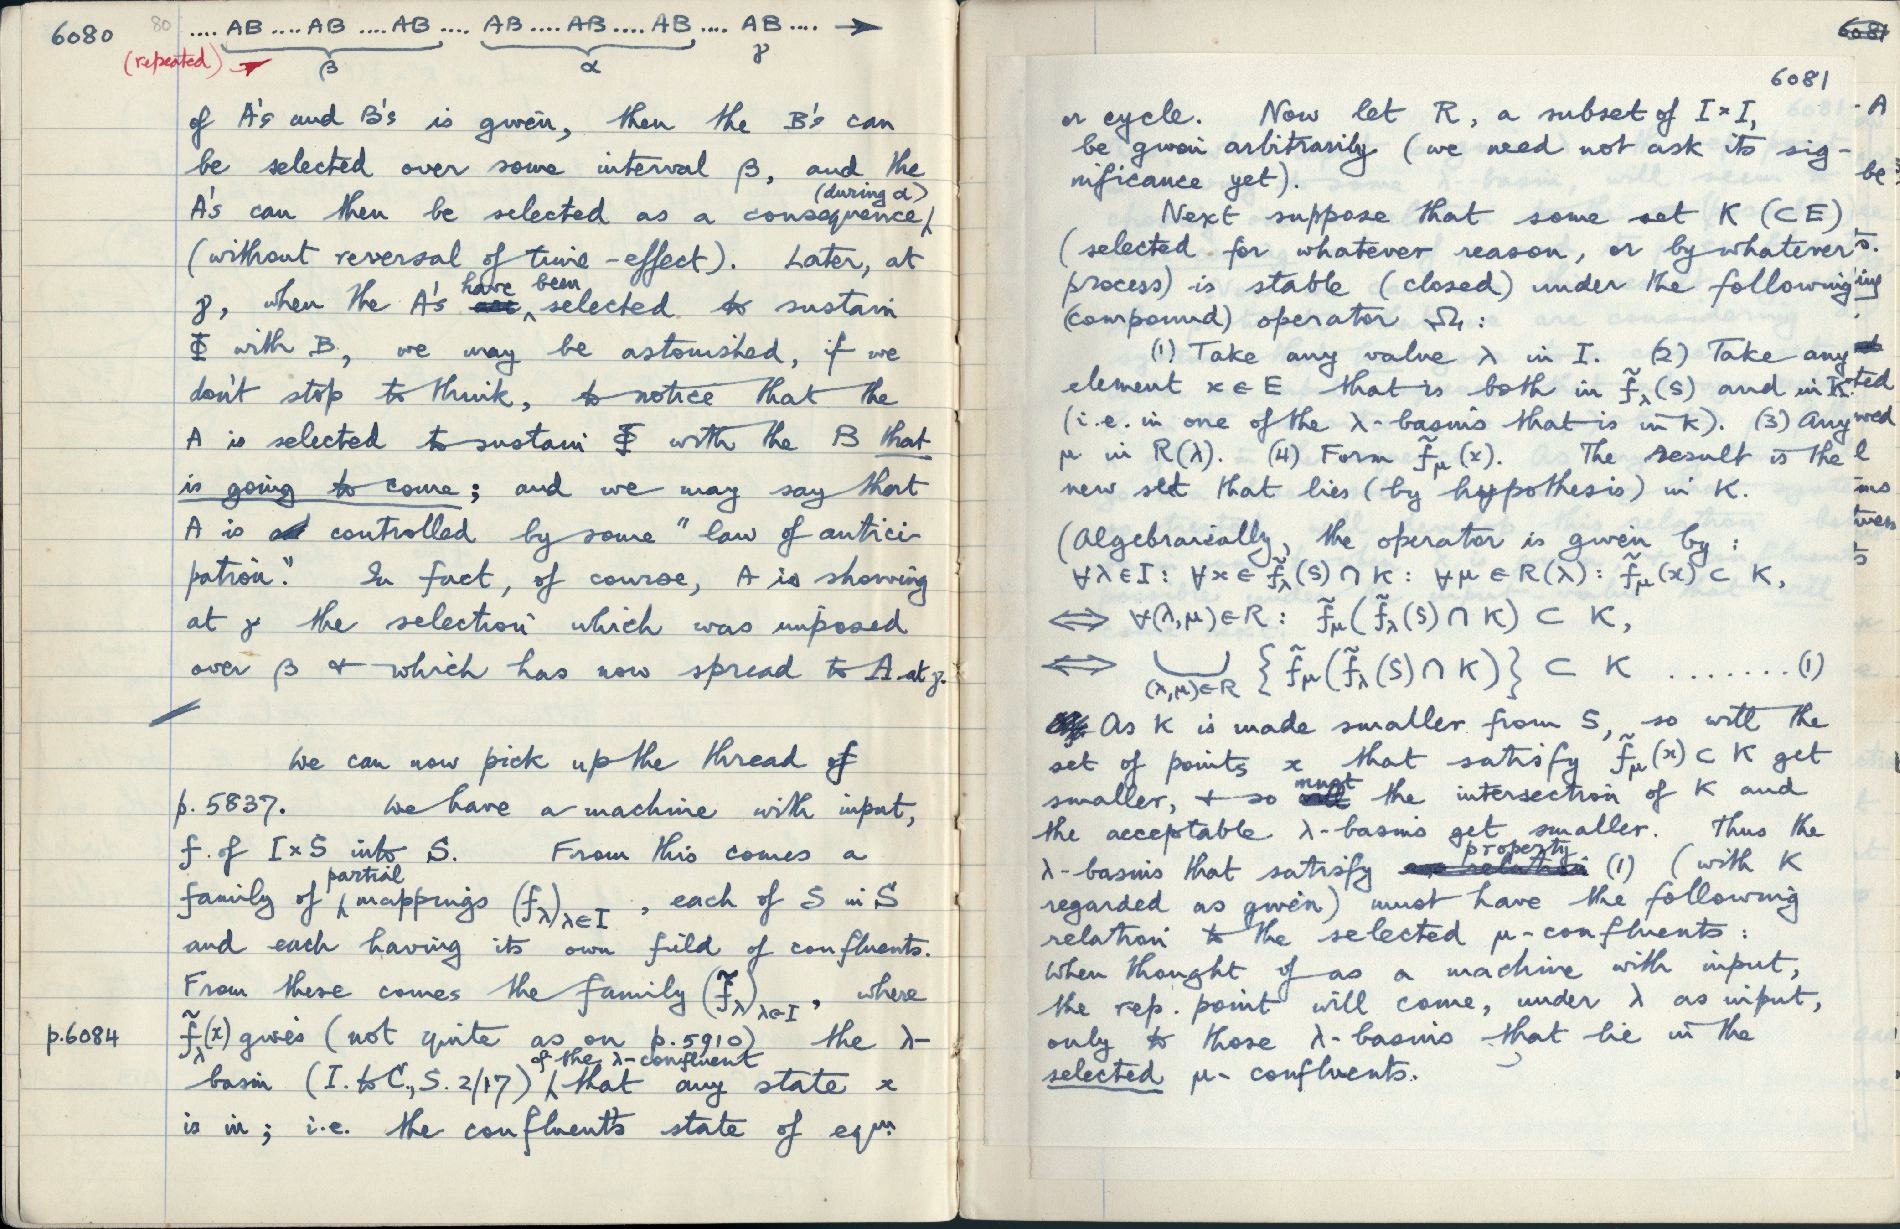 6080 80 .... AB .... AB .... AB .... AB .... AB .... AB .... AB .... →
(repeated) → β α γ
of A's and B's is given, then the B's can
be selected over some interval β, and the
(during α)
A's can then be selected as a consequence
(without reversal of time-effect). Later, at
have been
γ, when the A's are selected to sustain
Φ with B, we may be astonished, if we
don't stop to think, to notice that the
A is selected to sustain Φ with the B that
is going to come; and we may say that
A is controlled by some "law of antici-
pation". In fact, of course, A is showing
at γ the selection which was imposed
over β & which has now spread to A at γ.
We can now pick up the thread of
p. 5837. We have a machine with input,
f. of I×S into S. From this comes a
partial
family of mappings (fλ)λ∈I, each of S in S
and each having its own field of confluents.
From these comes the family (f̃λ)λ∈I, where
p.6084 f̃λ(x) gives (not quite as on p.5910) the λ-
of the λ-confluent
basin (I. to C., S. 2/17) that any state x
is in; i.e. the confluent's state of eqm.
6081
6081
or cycle. Now let R, a subset of I×I,
be given arbitrarily (we need not ask its sig-
nificance yet).
Next suppose that some set K (⊂E)
(selected for whatever reason, or by whatever
process) is stable (closed) under the following
(compound) operator Ω:
(1) Take any value λ in I. (2) Take any
element x∈E that is both in f̃λ(S) and in K.
(i.e. in one of the λ-basins that is in K). (3) Any
μ in R(λ). (4) Form f̃μ(x). The result is the
new set that lies (by hypothesis) in K.
(Algebraically, the operator is given by:
∀λ∈I: ∀x∈f̃λ(S)∩K: ∀μ∈R(λ): f̃μ(x)⊂K,
⟺ ∀(λ,μ)∈R: f̃μ(f̃λ(S)∩K) ⊂ K,
⟺ ⋃(λ,μ)∈R {f̃μ(f̃λ(S)∩K)} ⊂ K .......(1)
As K is made smaller from S, so will the
set of points x that satisfy f̃μ(x)⊂K get
must
smaller, & so will the intersection of K and
the acceptable λ-basins get smaller. Thus the
property
λ-basins that satisfy relation (1) (with K
regarded as given) must have the following
relation to the selected μ-confluents:
When thought of as a machine with input,
the rep. point will come, under λ as input,
only to those λ-basins that lie in the
selected μ-confluents.
A
be
s.
ing
ted
wed
l
ms
tween
s